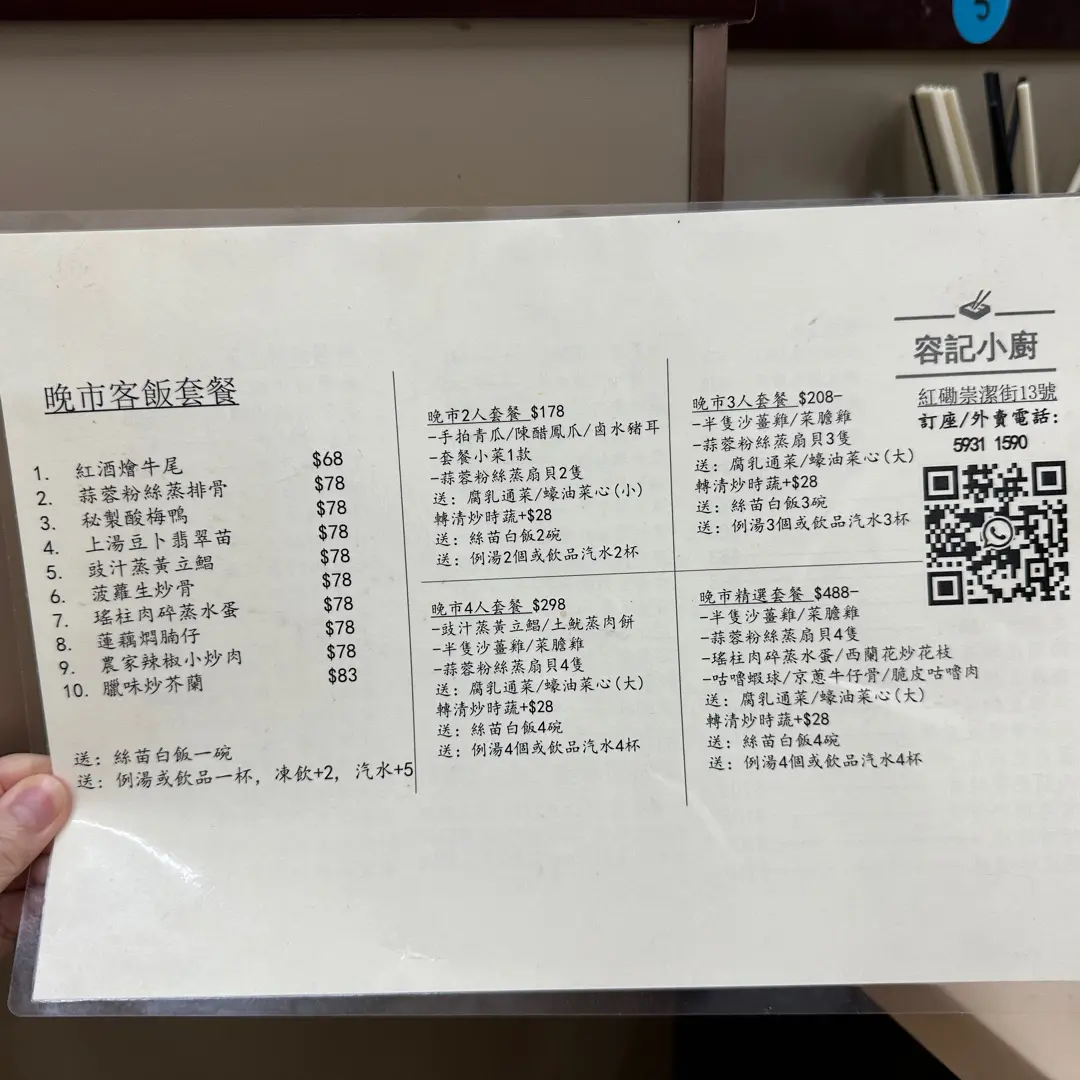 5
容記小廚
紅磡崇潔街13號
訂座/外賣電話:
5931 1590
晚市客飯套餐
1. 紅酒燴牛尾 $68
2. 蒜蓉粉絲蒸排骨 $78
3. 秘製酸梅鴨 $78
4. 上湯豆卜翡翠苗 $78
5. 豉汁蒸黃立鯧 $78
6. 菠蘿生炒骨 $78
7. 瑤柱肉碎蒸水蛋 $78
8. 蓮藕燜腩仔 $78
9. 農家辣椒小炒肉 $78
10. 臘味炒芥蘭 $83
送: 絲苗白飯一碗
送: 例湯或飲品一杯, 凍飲+2, 汽水+5
晚市2人套餐 $178
-手拍青瓜/陳醋鳳爪/鹵水豬耳
-套餐小菜1款
-蒜蓉粉絲蒸扇貝2隻
送: 腐乳通菜/蠔油菜心(小)
轉清炒時蔬+$28
送: 絲苗白飯2碗
送: 例湯2個或飲品汽水2杯
晚市3人套餐 $208-
-半隻沙薑雞/菜膽雞
-蒜蓉粉絲蒸扇貝3隻
送: 腐乳通菜/蠔油菜心(大)
轉清炒時蔬+$28
送: 絲苗白飯3碗
送: 例湯3個或飲品汽水3杯
晚市4人套餐 $298
-豉汁蒸黃立鯧/土魷蒸肉餅
-半隻沙薑雞/菜膽雞
-蒜蓉粉絲蒸扇貝4隻
送: 腐乳通菜/蠔油菜心(大)
轉清炒時蔬+$28
送: 絲苗白飯4碗
送: 例湯4個或飲品汽水4杯
晚市精選套餐 $488-
-半隻沙薑雞/菜膽雞
-蒜蓉粉絲蒸扇貝4隻
-瑤柱肉碎蒸水蛋/西蘭花炒花枝
-咕嚕蝦球/京蔥牛仔骨/脆皮咕嚕肉
送: 腐乳通菜/蠔油菜心(大)
轉清炒時蔬+$28
送: 絲苗白飯4碗
送: 例湯4個或飲品汽水4杯